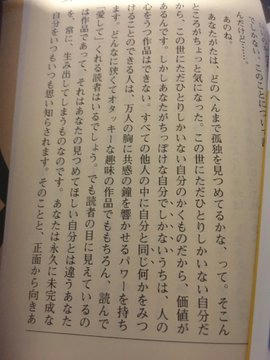 でしかない、このことについて
んだけど……
あのね。
あなたがたは、どのへんまで孤独を見つめてるかな、って。そこん
ところがちょっと気になった。この世にただひとりしかいない自分だ
から、この世にただひとりしかいない自分のかくものだから、価値が
あるんです。しかしあなたがちっぽけな自分でしかないうちは、人の
心をうつ作品はできない。すべての他人の中に自分と同じ何かをみつ
けることのできる人は、万人の胸に共感の鐘を響かせるパワーを持ち
ます。どんなに狭くてオタッキーな趣味の作品でももちろん、読んで
「愛して」くれる読者はいるでしょう。でも読者の目に見えているの
は作品であって、それはあなたの見つめてほしい自分とは違うあなた
を、常に、生み出してしまうものなのです。あなたは永久に未完成な
自分をいつもいつも思い知らされます。そのことと、正面から向きあ